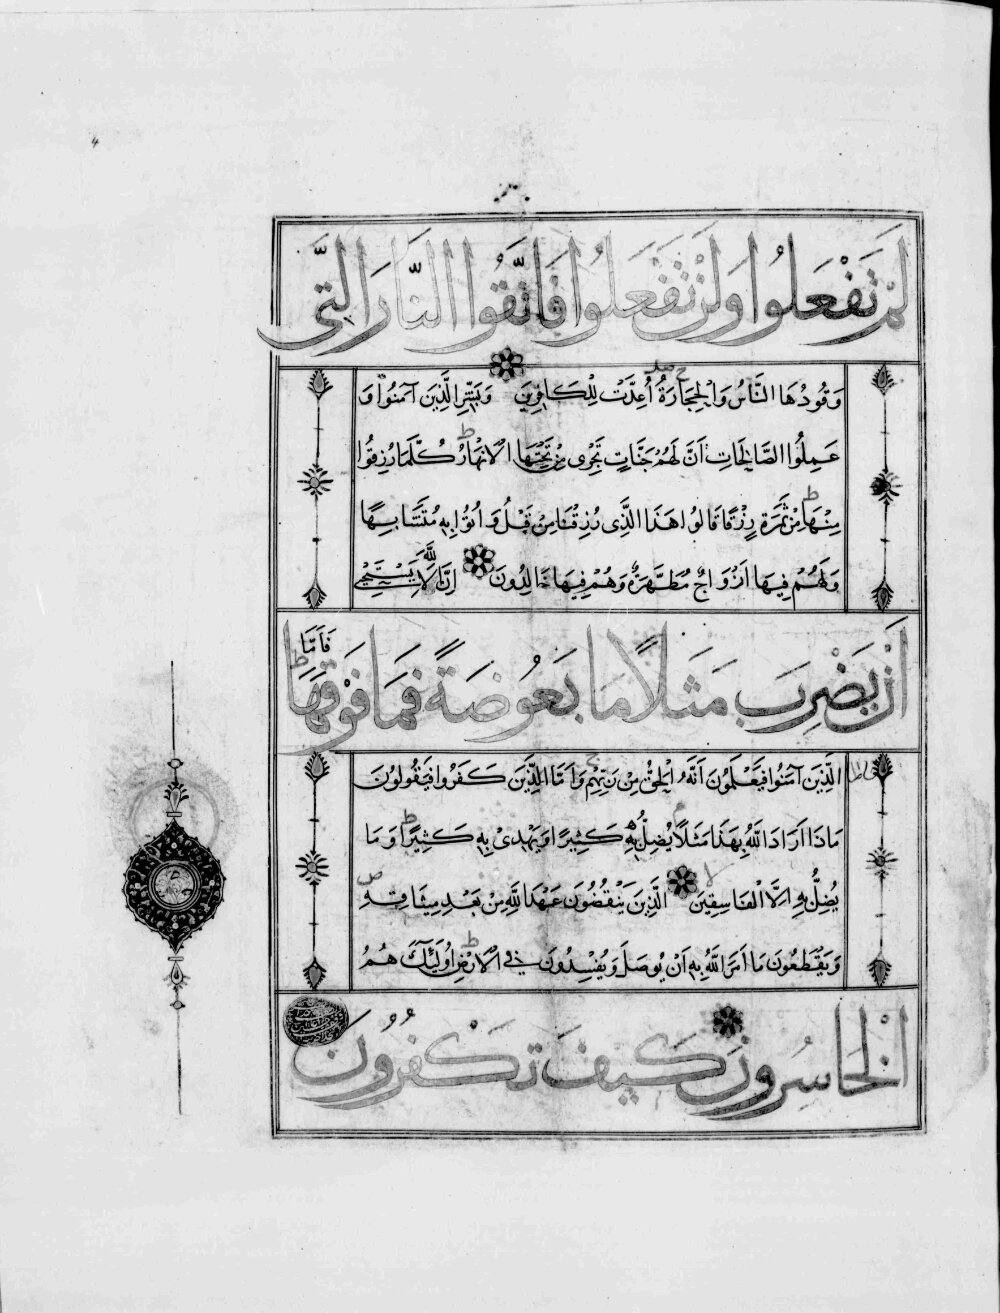 لَمْ تَفْعَلُوا وَلَنْ تَفْعَلُوا فَاتَّقُوا النَّارَ الَّتِی
وَقُودُهَا النَّاسُ وَالْحِجَارَةُ أُعِدَّتْ لِلْكَافِرِينَ وَبَشِّرِ الَّذِينَ آمَنُوا وَ
عَمِلُوا الصَّالِحَاتِ اَنَّ لَهُمْ جَنَّاتٍ تَجْرِی مِنْ تَحْتِهَا الْاَنْهَارُ كُلَّمَا رُزِقُوا
مِنْهَا مِنْ ثَمَرَةٍ رِزْقًا قَالُوا هَذَا الَّذِی رُزِقْنَا مِنْ قَبْلُ وَاُتُوا بِهِ مُتَشَابِهًا
وَلَهُمْ فِيهَا اَزْوَاجٌ مُطَهَّرَةٌ وَهُمْ فِيهَا خَالِدُونَ اِنَّ اللَّهَ لَا يَسْتَحْيِي
اَنْ يَضْرِبَ مَثَلًا مَا بَعُوضَةً فَمَا فَوْقَهَا فَاَمَّا
الَّذِينَ آمَنُوا فَيَعْلَمُونَ اَنَّهُ الْحَقُّ مِنْ رَبِّهِمْ وَاَمَّا الَّذِينَ كَفَرُوا فَيَقُولُونَ
مَاذَا اَرَادَ اللَّهُ بِهَذَا مَثَلًا يُضِلُّ بِهِ كَثِيرًا وَيَهْدِی بِهِ كَثِيرًا وَمَا
يُضِلُّ بِهِ اِلَّا الْفَاسِقِينَ الَّذِينَ يَنْقُضُونَ عَهْدَ اللَّهِ مِنْ بَعْدِ مِيثَاقِهِ
وَيَقْطَعُونَ مَا اَمَرَ اللَّهُ بِهِ اَنْ يُوصَلَ وَيُفْسِدُونَ فِی الْاَرْضِ اُولَٓئِكَ هُمُ
الْخَاسِرُونَ كَيْفَ تَكْفُرُونَ